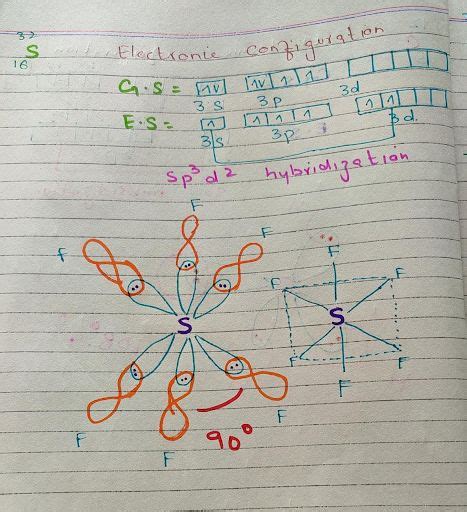 32
S
16
Electronic configuration
G.S = 1v 1v 1 1
3s 3p 3d
E.S = 1 1 1 1 1 1
3s 3p 3d
sp³d² hybridization
F
F F
S
F F
F
90°
F
F F
S
F F
F